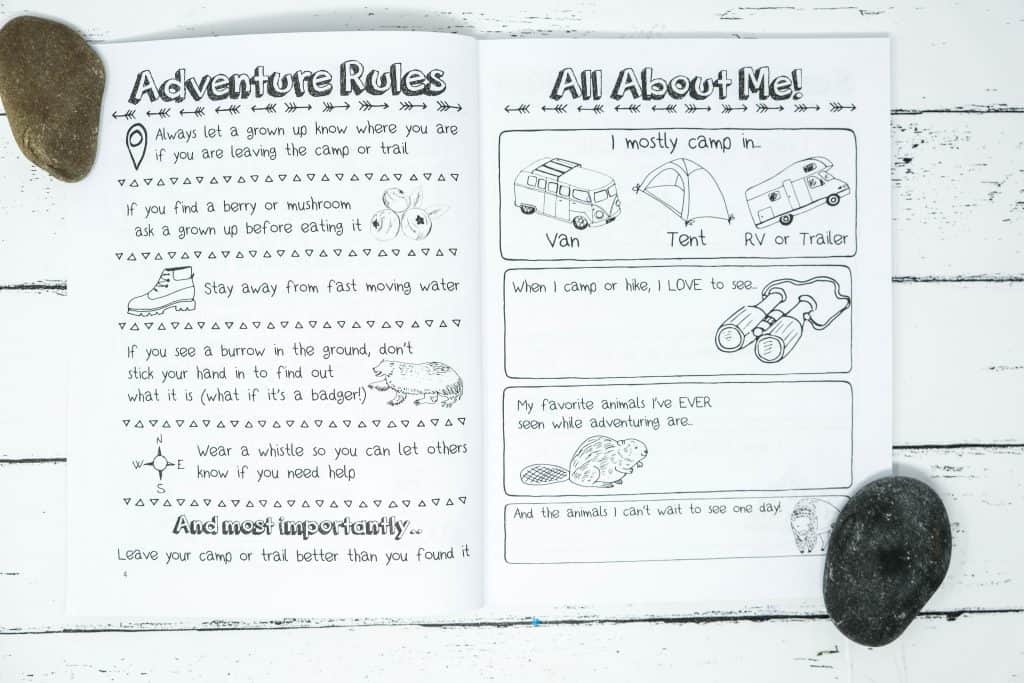 Adventure Rules
Always let a grown up know where you are
if you are leaving the camp or trail
If you find a berry or mushroom
ask a grown up before eating it
Stay away from fast moving water
If you see a burrow in the ground, don't
stick your hand in to find out
what it is (what if it's a badger!)
N
W E
S
Wear a whistle so you can let others
know if you need help
And most importantly..
Leave your camp or trail better than you found it
4
All About Me!
I mostly camp in...
Van
Tent
RV or Trailer
When I camp or hike, I LOVE to see...
My favorite animals I've EVER
seen while adventuring are...
And the animals I can't wait to see one day!